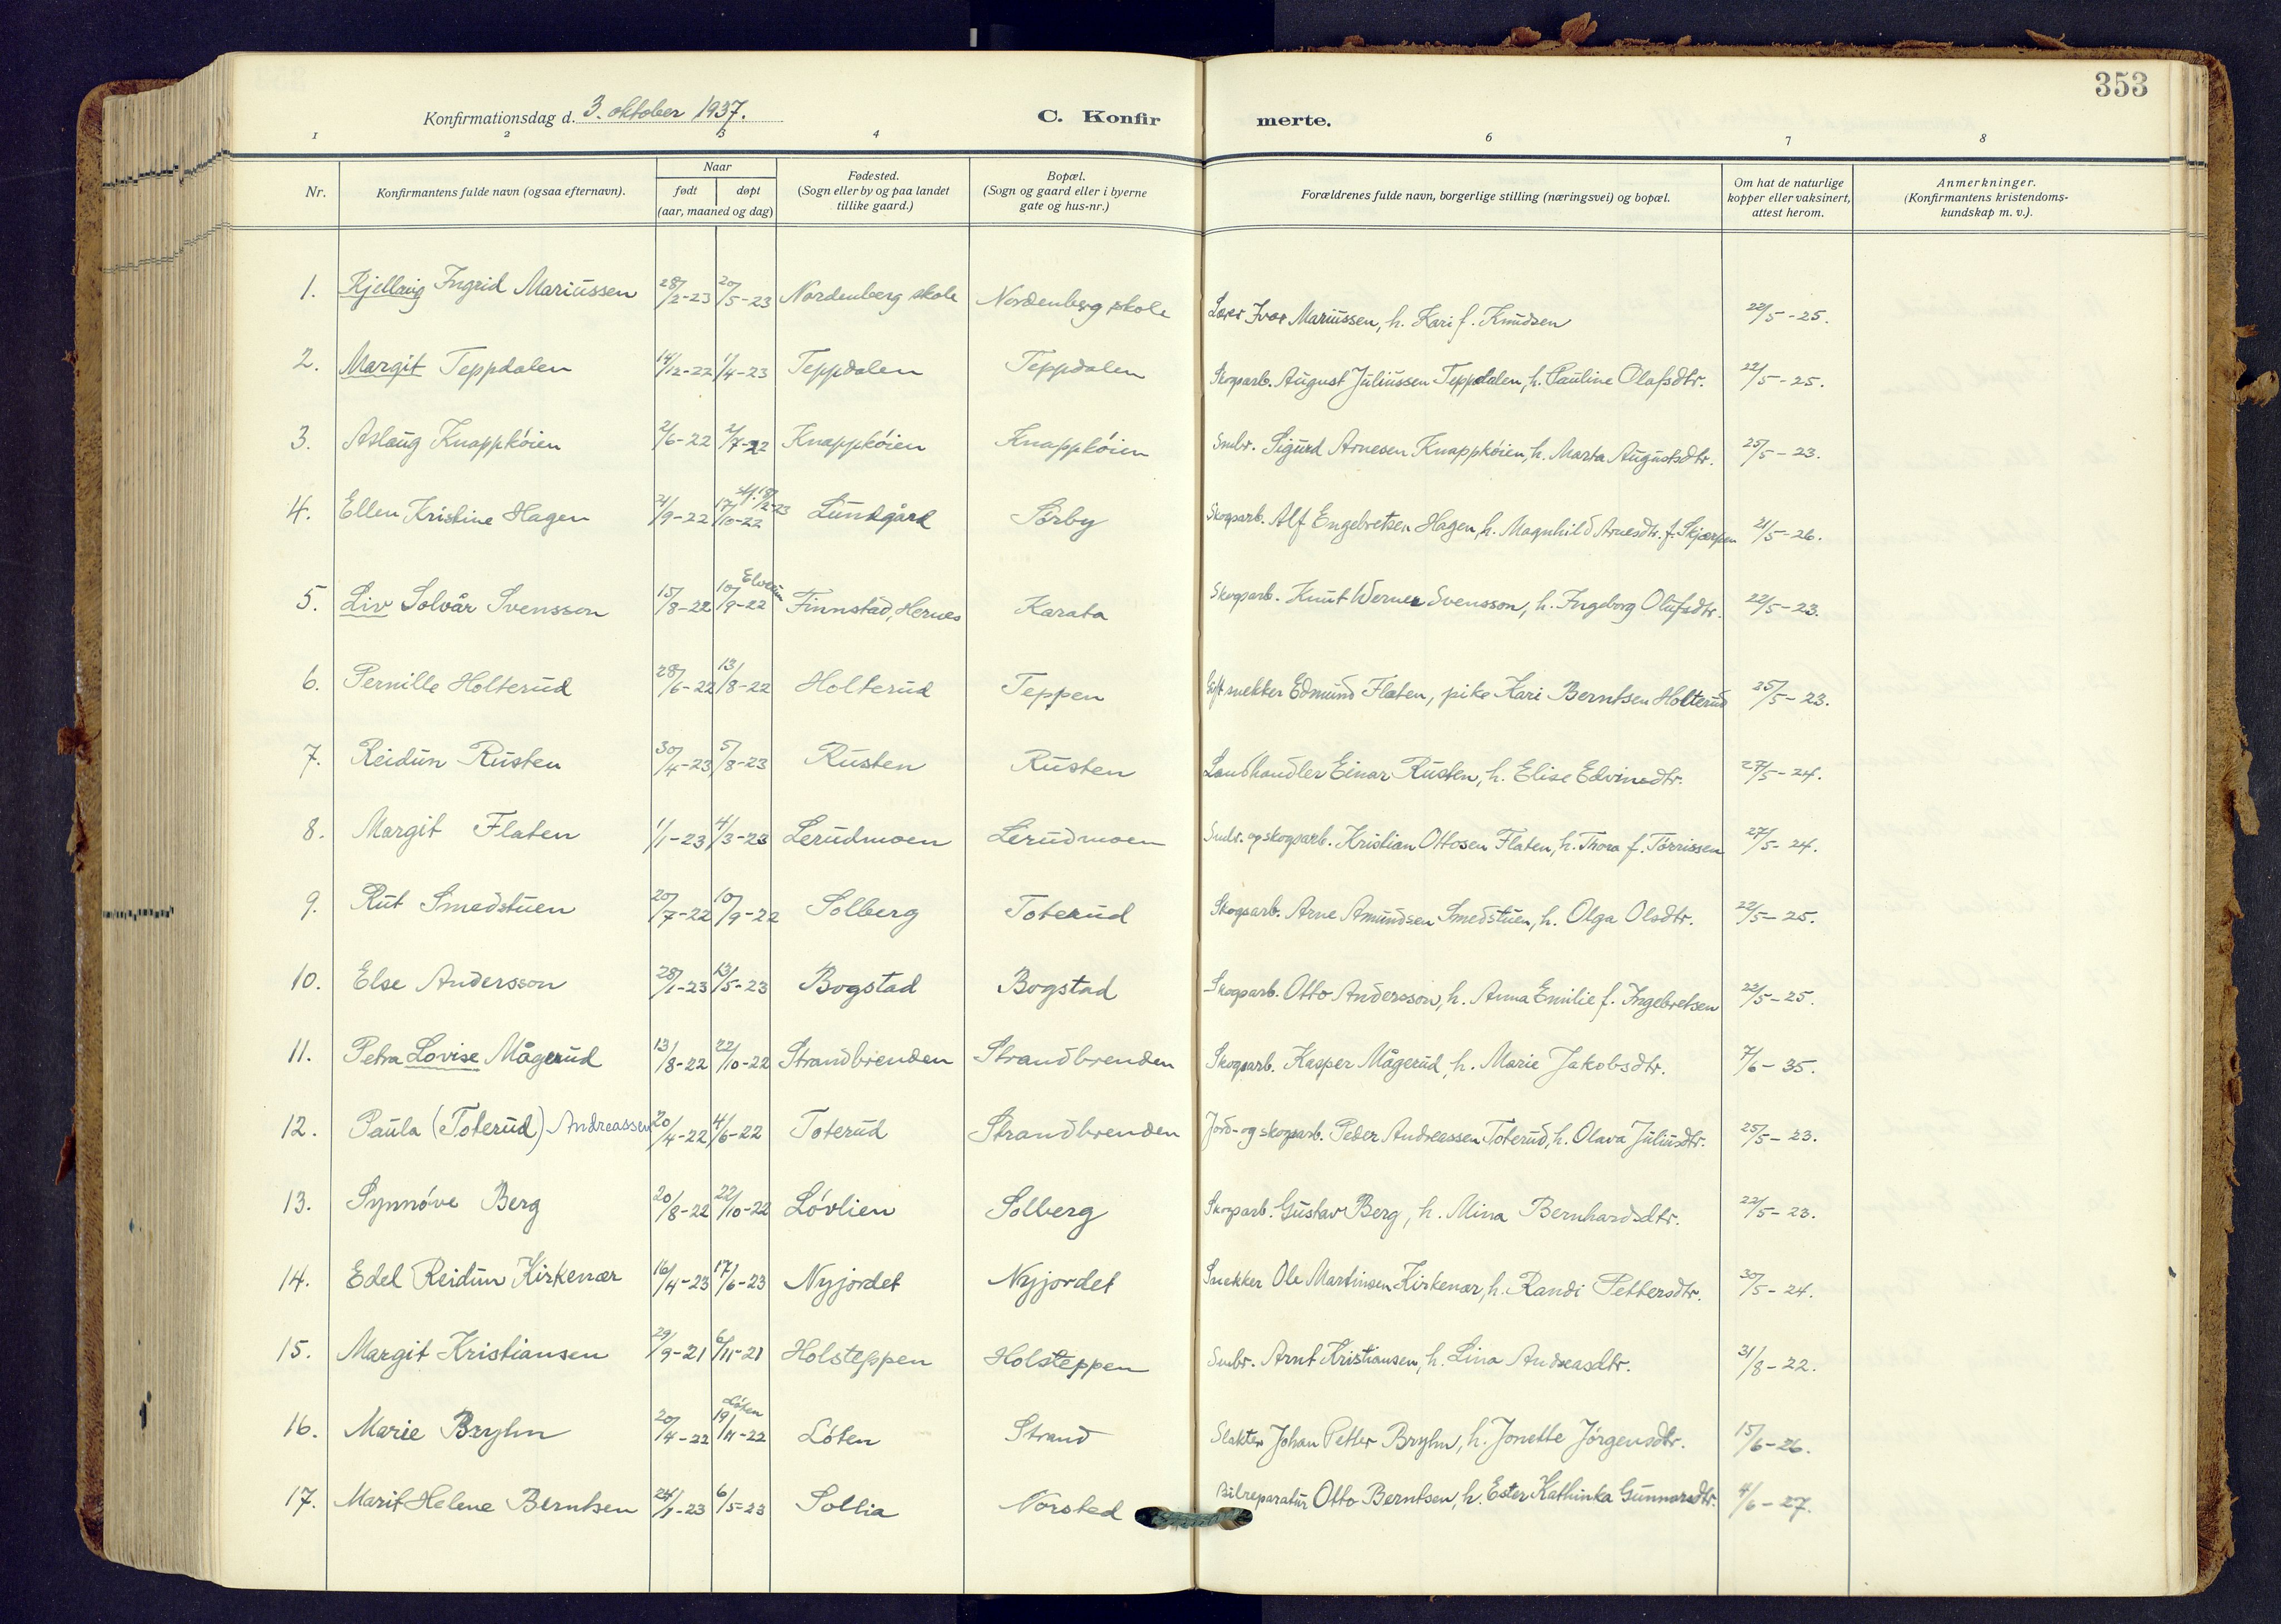 353
Konfirmationsdag d. 3. oktober 1937.
C. Konfirmerte.
1 2 3 4 6 7 8
Nr. | Konfirmantens fulde navn (ogsaa efternavn). | Naar født døpt (aar, maaned og dag) | Fødested. (Sogn eller by og paa landet tillike gaard.) | Bopæl. (Sogn og gaard eller i byerne gate og hus-nr.) | Forældrenes fulde navn, borgerlige stilling (næringsvei) og bopæl. | Om hat de naturlige kopper eller vaksinert, attest herom. | Anmerkninger. (Konfirmantens kristendomskundskap m. v.).
1. Kjellaug Ingrid Mariussen 28/2-23 20/5-23 Nordenberg skole Nordenberg skole Lærer Ivar Mariussen, h. Kari f. Knudsen 22/5-25.
2. Margit Teppdalen 14/12-22 1/4-23 Teppdalen Teppdalen Skogsarb. August Juliussen Teppdalen, h. Pauline Olafsdtr. 22/5-25.
3. Aslaug Knappkøien 2/6-22 2/7-22 Knappkøien Knappkøien Smbr. Sigurd Arnesen Knappkøien, h. Marta Augustsdtr. 25/5-23.
4. Ellen Kristine Hagen 21/9-22 17/10-22 stf. 18/2-23 Lundgård Sørby Skogsarb. Alf Engebretsen Hagen, h. Magnhild Arnesdtr. f. Skjærpen 21/5-26.
5. Liv Solvår Svensson 15/8-22 10/9-22 Elverum Finnstad, Hernes Karata Skogsarb. Knut Werner Svensson, h. Ingeborg Olufsdtr. 22/5-23.
6. Pernille Holterud 28/6-22 13/8-22 Holterud Teppen Gift snekker Edmund Flaten, pike Kari Berntsen Holterud 25/5-23.
7. Reidun Rusten 30/4-23 5/8-23 Rusten Rusten Landhandler Einar Rusten, h. Elise Edvinsdtr. 27/5-24.
8. Margit Flaten 1/1-23 4/3-23 Lerudmoen Lerudmoen Smbr. og skogsarb. Kristian Ottosen Flaten, h. Thora f. Tørrissen 27/5-24.
9. Rut Smedstuen 20/7-22 10/9-22 Solberg Toterud Skogsarb. Arne Amundsen Smedstuen, h. Olga Olsdtr. 22/5-25.
10. Else Andersson 28/1-23 13/5-23 Bogstad Bogstad Skogsarb. Otto Andersson, h. Anna Emilie f. Ingebretsen 22/5-25.
11. Petra Lovise Mågerud 13/8-22 22/10-22 Strandbrenden Strandbrenden Skogsarb. Kasper Mågerud, h. Marie Jakobsdtr. 7/6-35.
12. Paula (Toterud) Andreassen 20/4-22 4/6-22 Toterud Strandbrenden Jord- og skogsarb. Peder Andreassen Toterud, h. Olava Juliusdtr. 25/5-23.
13. Synnøve Berg 20/8-22 22/10-22 Løvlien Solberg Skogsarb. Gustav Berg, h. Mina Bernhardsdtr. 22/5-23.
14. Edel Reidun Kirkenær 16/4-23 17/6-23 Nyjordet Nyjordet Snekker Ole Martinsen Kirkenær, h. Randi Pettersdtr. 30/5-24.
15. Margit Kristiansen 29/9-21 6/11-21 Holsteppen Holsteppen Smbr. Arnt Kristiansen, h. Lina Andreasdtr. 31/8-22.
16. Marie Bryhn 20/4-22 19/11-22 Løten Løten Strand Slakter Johan Petter Bryhn, h. Jonette Jørgensdtr. 15/6-26.
17. Marit Helene Berntsen 24/1-23 6/5-23 Sollia Norsted Bilreparatør Otto Berntsen, h. Ester Kathinka Gunnarsdtr. 4/6-27.